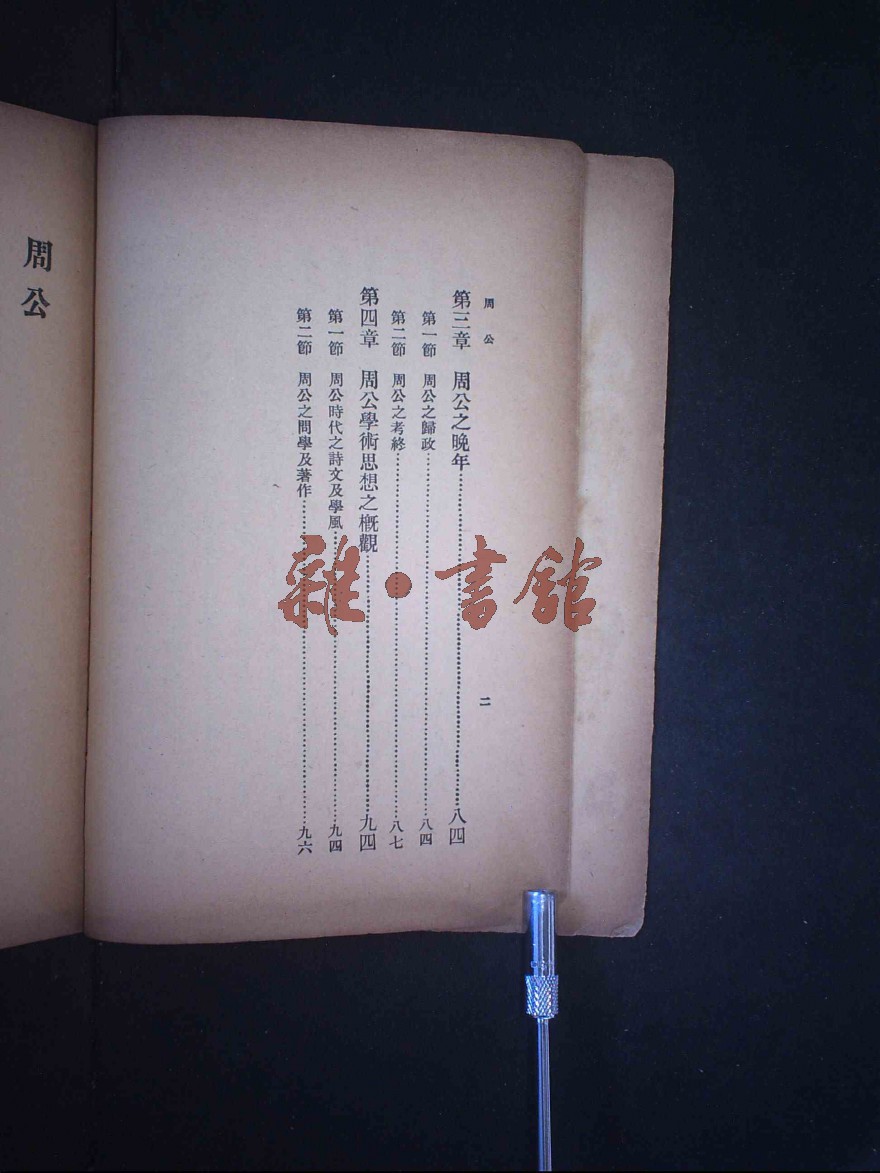 周公
二
第三章　周公之晚年……八四
第一節　周公之歸政……八四
第二節　周公之考終……八七
第四章　周公學術思想之概觀……九四
第一節　周公時代之詩文及學風……九四
第二節　周公之問學及著作……九六
周公
雜·書館